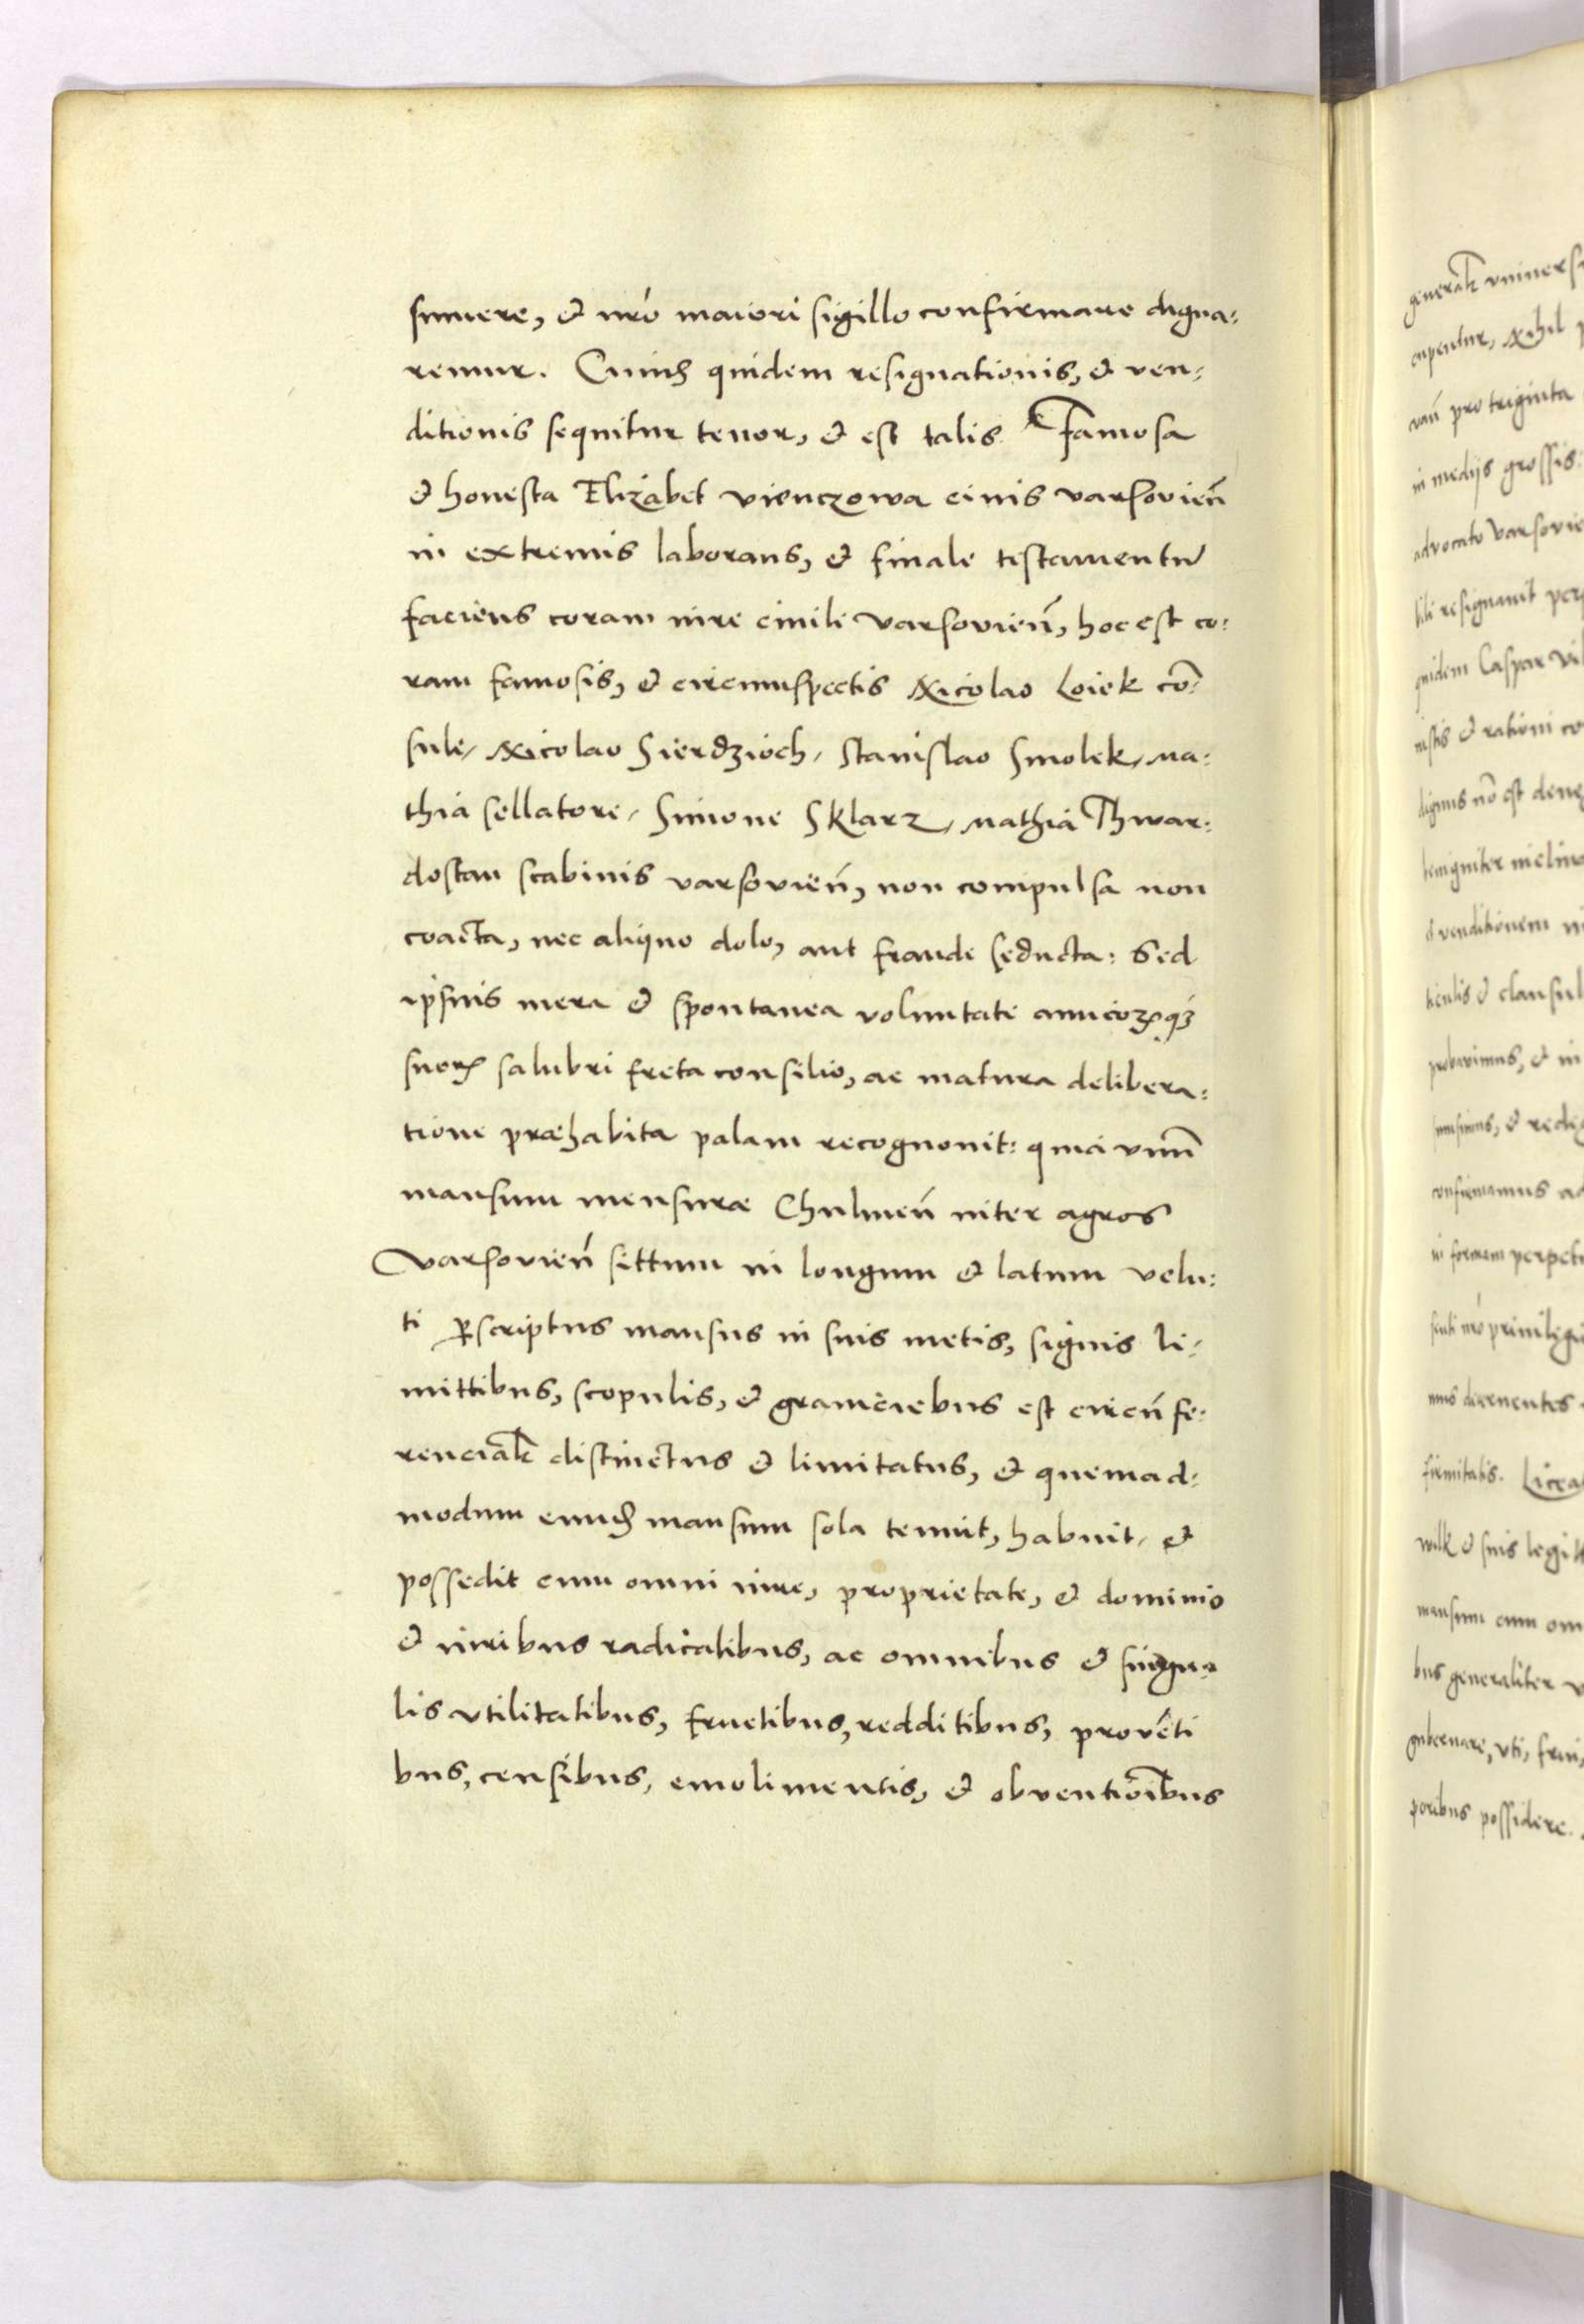 sumere, et nr̃o maiori sigillo confirmare digna:
remur. Cuius quidem resignationis, et ven:
ditionis sequitur tenor, et est talis. Famosa
et honesta Elizabet Vienczowa civis varsovien̄
in extremis laborans, et finale testamentū
faciens coram iure civili varsovien̄, hoc est co:
ram famosis, et circumspectis Nicolao Loiek cō:
sule, Nicolao Sierdzioch, Stanislao Smolek, Ma:
thia sellatore, Simone Sklarz, Mathia Thwar:
dostan scabinis varsovien̄, non compulsa non
coacta, nec aliquo dolo, aut fraude seducta: Sed
ipsius mera et spontanea voluntate amicoꝝqꝫ
suoꝝ salubri freta consilio, ac matura delibera:
tione præhabita palam recognovit: quia vnū
mansum mensuræ Chulmen̄ inter agros
Varsovien̄ sittum in longum et latum velu:
ti ꝑscriptus mansus in suis metis, signis li:
mittibus, scopulis, et graniciebus est circūfe:
rencialr̄ distinctus et limitatus, et quemad:
modum eund̄ mansum sola tenuit, habuit, et
possedit cum omni iure, proprietate, et dominio
et iuribus radicalibus, ac omnibus et singu:
lis vtilitatibus, fructibus, redditibus, provēti
bus, censibus, emolimentis, et obventiōibus
generalr̄ vniversi
cupentur, Nihil
pro triginta
in medijs grossis
advocato Varsovie
resignavit per
quidem Caspar
et rationi co
dignus nō est dene
benigniter inclina
venditionem in
ticulis et clausul
probavimus, et in
et redi
confirmamus ac
in formam perpetu
nr̃o privilegi
decernentes
firmitatis. Licea
et suis legit
mansum cum om
bus generaliter v
gubernare, vti, frui,
poribus possidere.